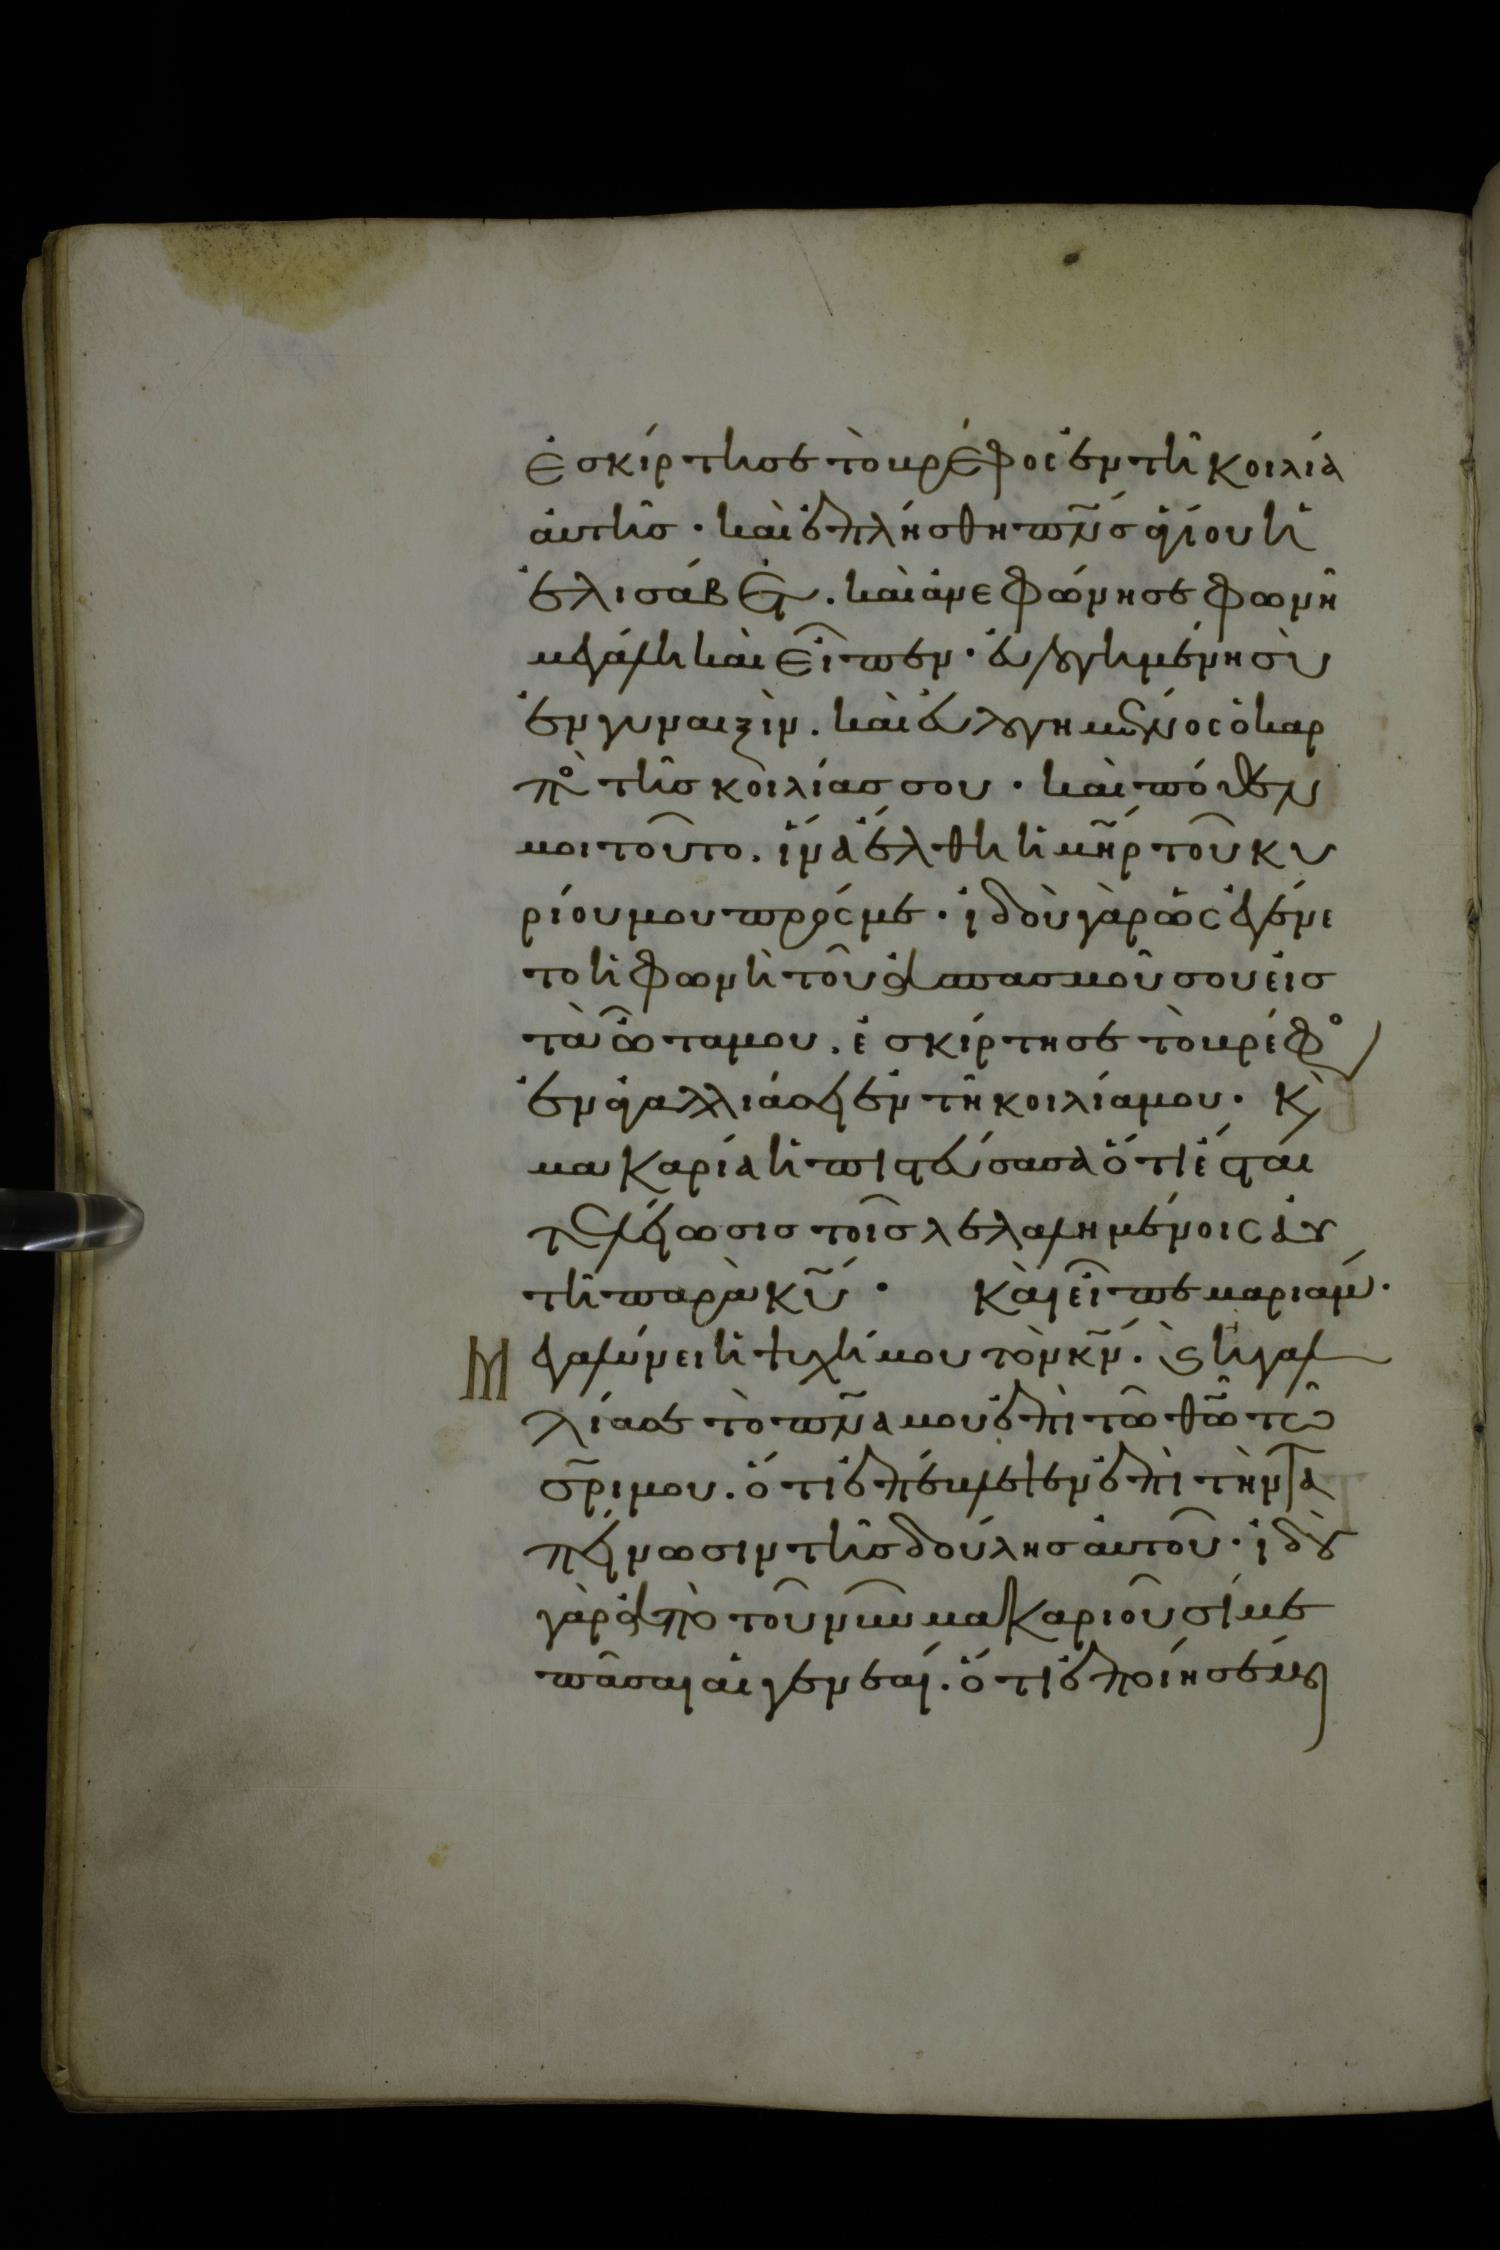 ἐσκίρτησε τὸ βρέφος ἐν τῆ κοιλία
ἀυτῆσ · καὶ ἐπλήσθη πν̅σ ἁγίου ἡ
ἐλισάβετ . καὶ ἀνεφώνησε φωνῆ
μεγάλη καὶ εἶπεν · ἐυλογημένη σὺ
ἐν γυναιξὶν . καὶ ἐυλογημένος ὁ καρ
πὸ τῆσ κοιλίασ σου · καὶ πόθεν
μοι τοῦτο . ἵνα ἔλθη ἡ μη̅ρ τοῦ κυ
ρίου μου πρός με · ἰδοὺ γὰρ ὡς ἐγένε
το ἡ φωνὴ τοῦ ἀσπασμοῦ σου εἰσ
τὰ ὦτα μου . ἐσκίρτησε τὸ βρέφο
ἐν ἀγαλλιάσει ἐν τῆ κοιλία μου · κ̀
μακαρία ἡ πιστεύσασα ὅτι ἔσται
τελείωσισ τοῖσ λελαλημένοις ἀυ
τῆ παρὰ κ̅υ · Καὶ εἶπε μαριάμ ·
Μεγαλύνει ἡ ψυχή μου τὸν κ̅ν . ϛ̀ ἠγαλ
λίασε τὸ πν̅α μου ἐπὶ τῶ θ̅ω τῶ
σ̅ρι μου . ὅτι ἐπέβλεψεν ἐπὶ τὴν τα
πείνωσιν τῆσ δούλησ ἀυτοῦ · ἰδοὺ
γὰρ ἀπὸ τοῦ νῦν μακαριοῦσί με
πᾶσαι αἱ γενεαί . ὅτι ἐποίησέ μοι